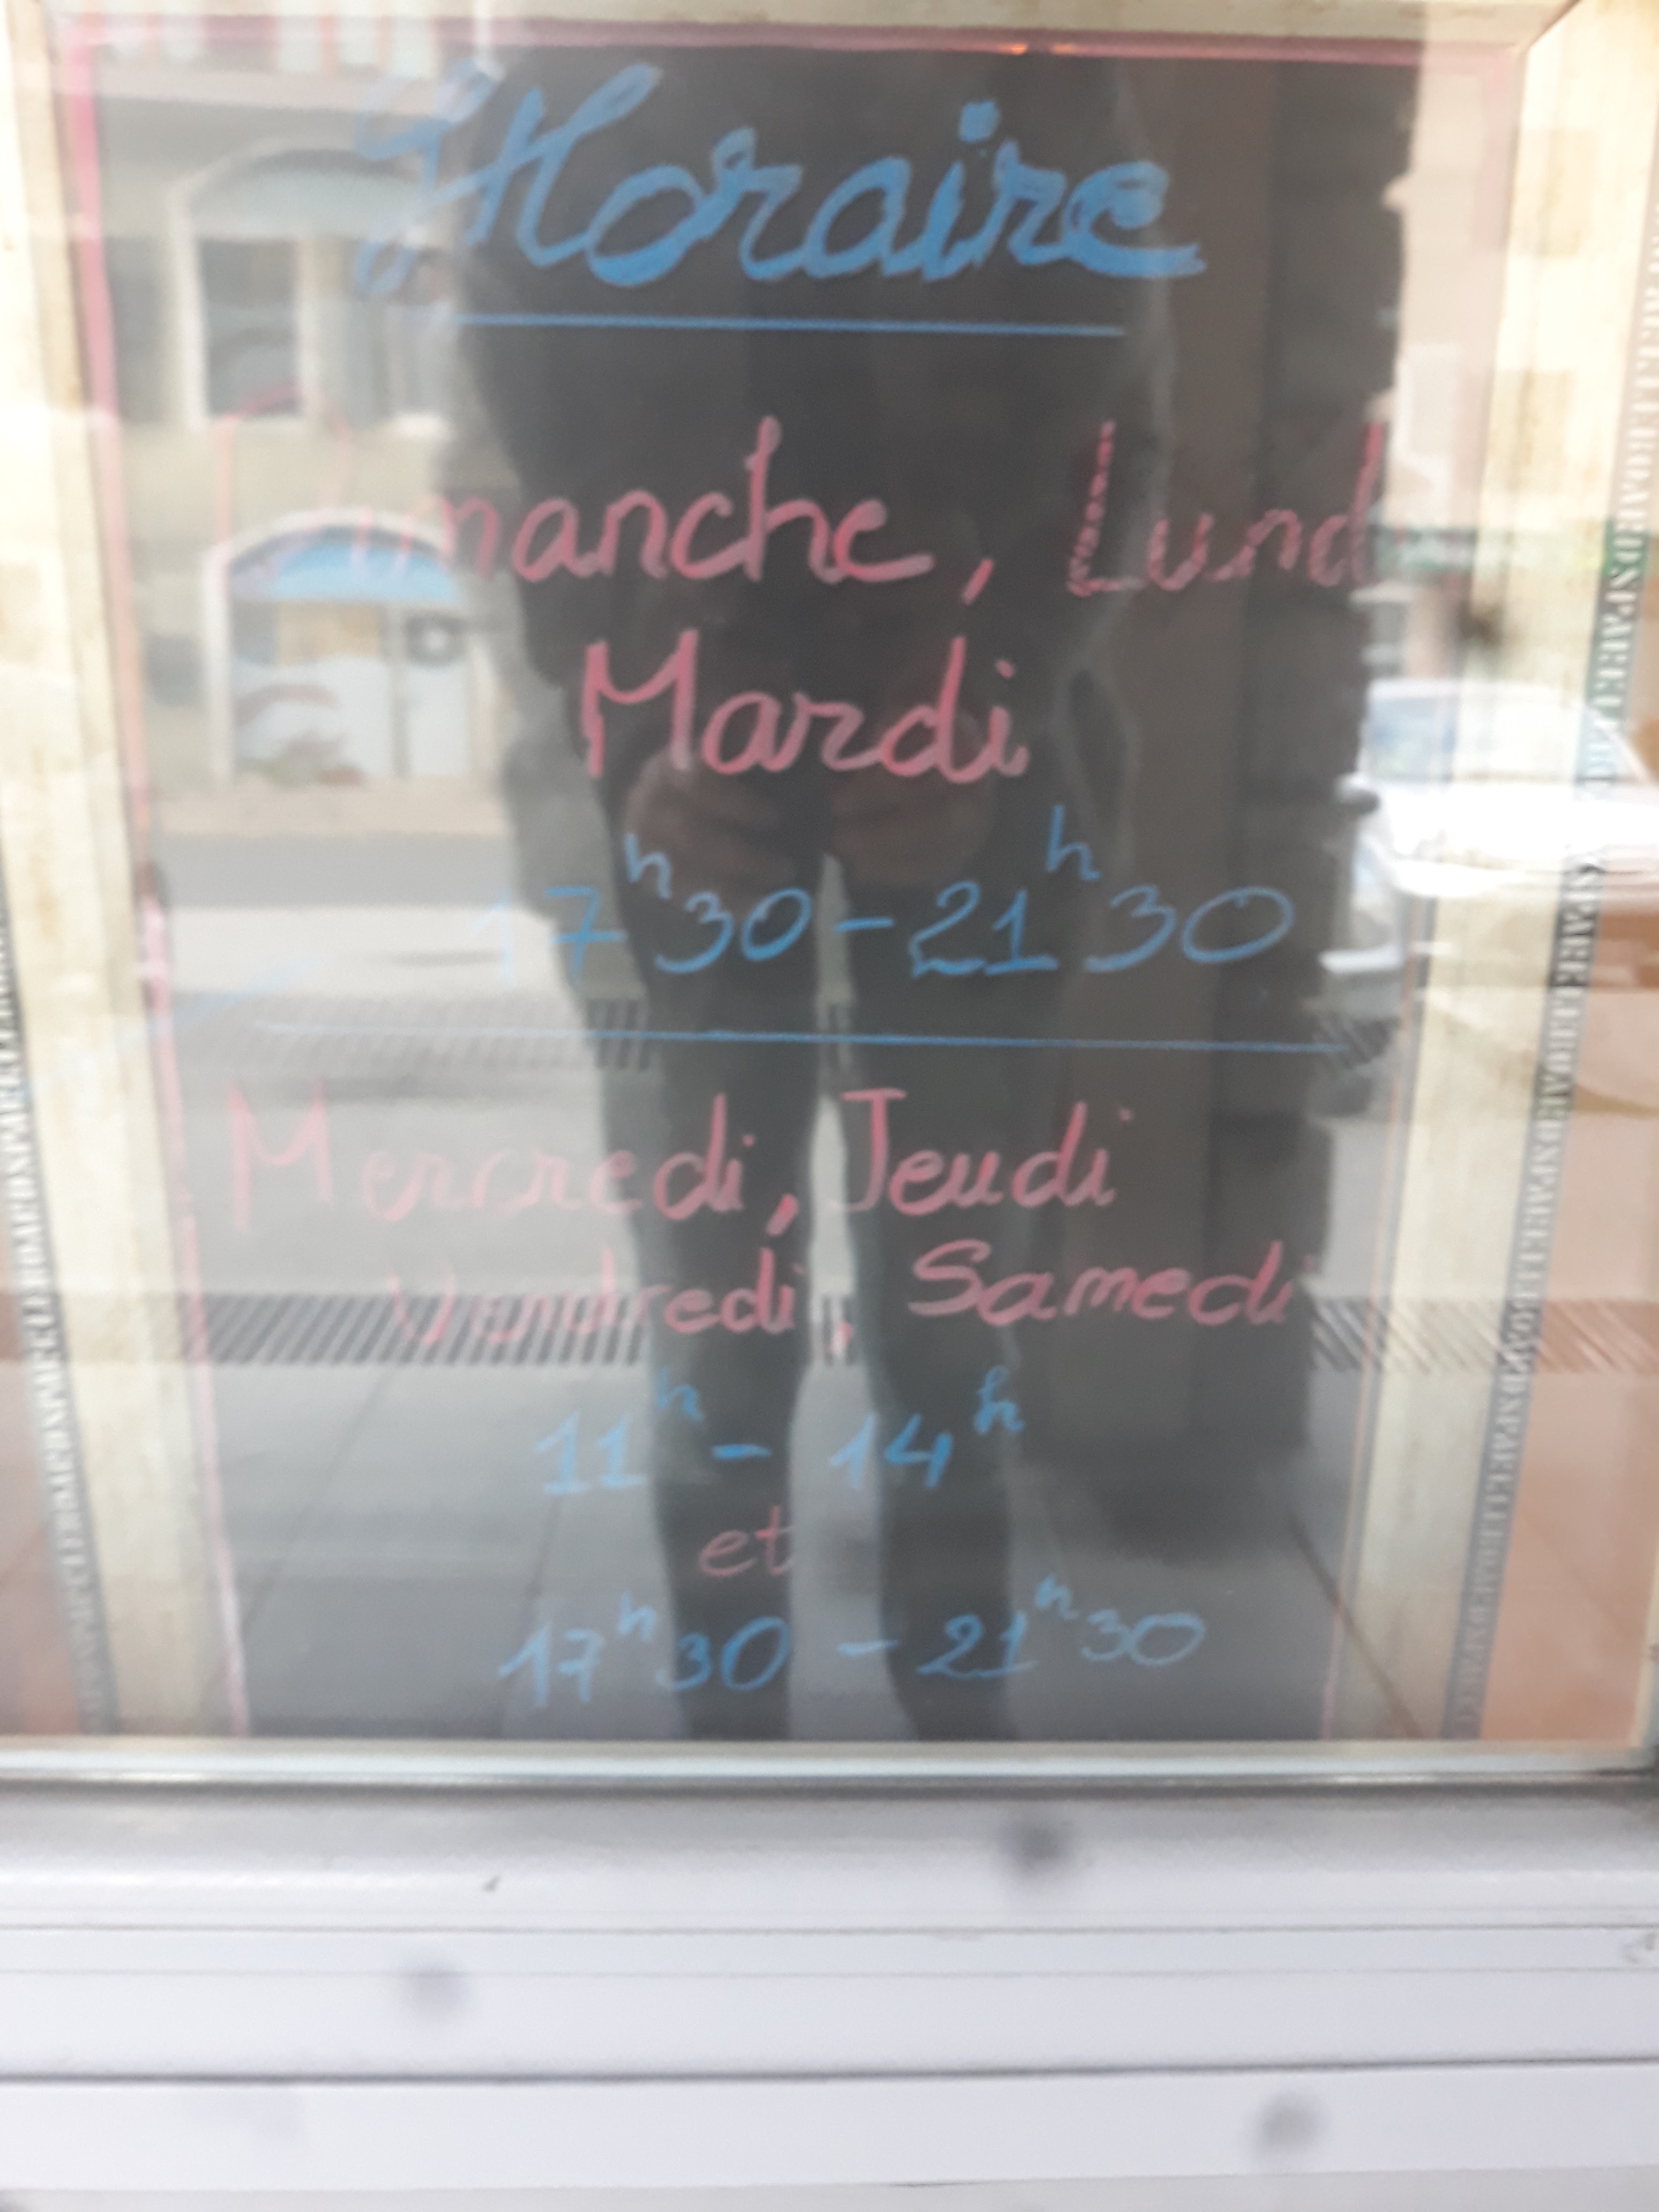 Horaire
Dimanche, Lundi
Mardi
17h30 - 21h30
Mercredi, Jeudi
Vendredi, Samedi
11h - 14h
et
17h30 - 21h30